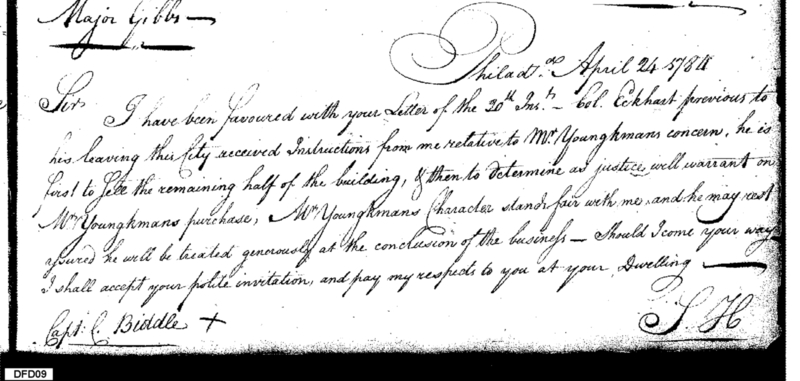 Major Gibbs
Philad.ª April 24 1784
Sir
I have been favoured with your Letter of the 20th Inst. – Col. Eckhart previous to
his leaving this City received Instructions from me relative to Mr Youngkmans concern, he is
first to sell the remaining half of the building, & then to determine as justice will warrant on
Mr Youngkmans purchase, Mr Youngkmans Character stands fair with me, and he may rest
assured he will be treated generously at the conclusion of the business – Should I come your way
I shall accept your polite invitation, and pay my respects to you at your Dwelling
Capt. C. Biddle +
S H
DFD09